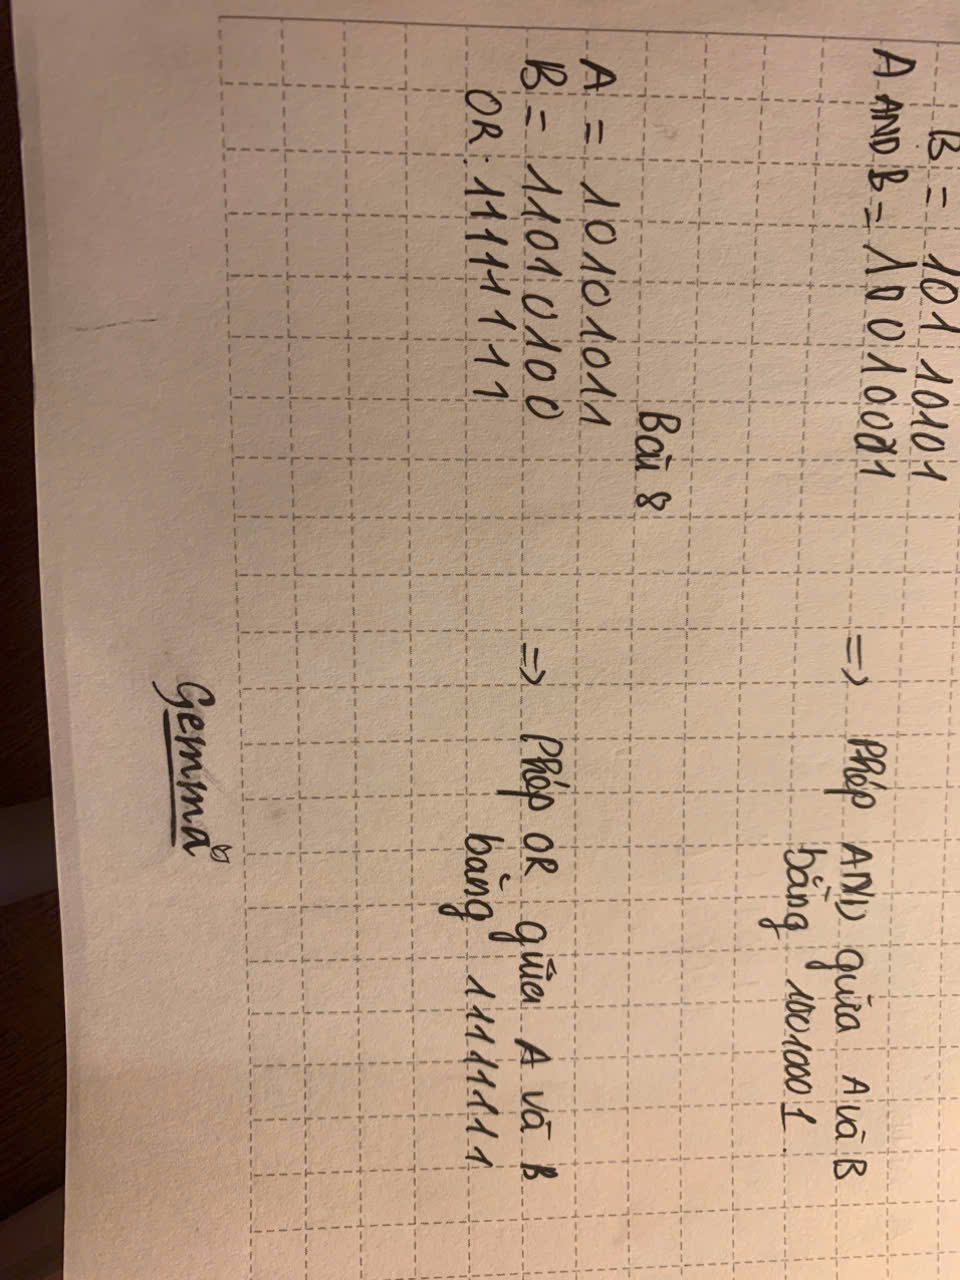 B = 101 10101
A AND B = 10010001 => Phép AND giữa A và B
bằng 10010001
Bài 8
A = 10101011
B = 11010100 => Phép OR giữa A và B
OR: 11111111 bằng 11111111
Gemma